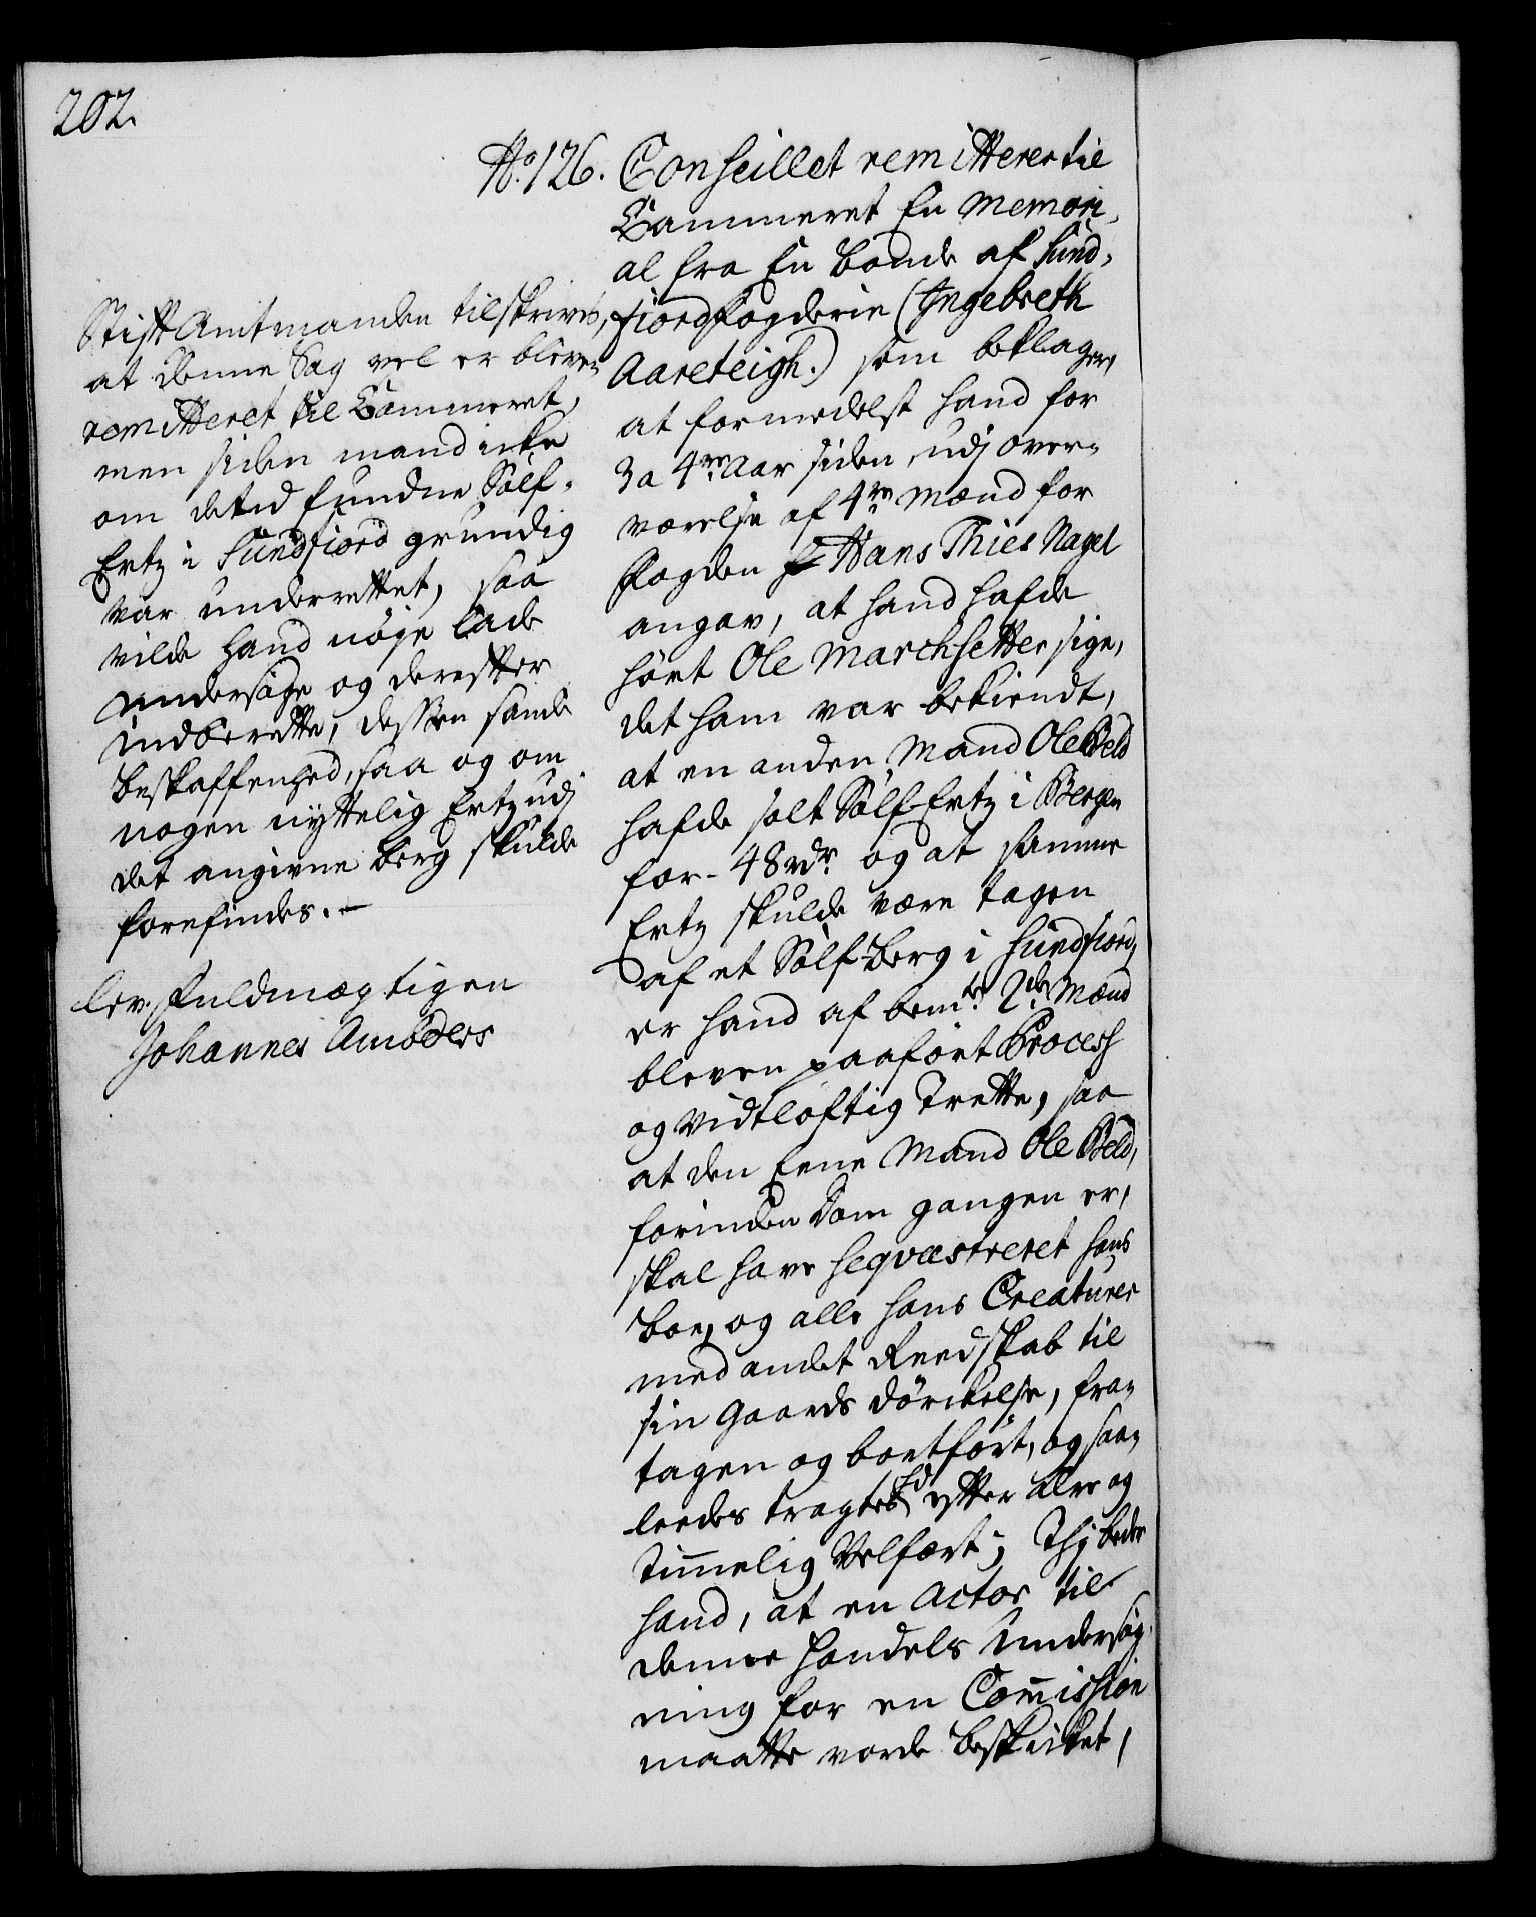 202.
No. 126. Conseillet remitterer til
Cammeret En Memori,
al fra En bonde af Sund,
fiord fogderie (Ingebreth
Aareteigh.) som beklager,
at formedelst hand for
3 a 4re Aar siden, udj over,
værelse af 4re Mænd for
fogden Hans Thies Nagel
angav, at hand hafde
hört Ole Marchsetter sige,
det ham var bekiendt,
at en anden Mand Ole Beld
hafde solt Sölf Ertz i Bergen
for - 48 rdr. og at samme
Ertz skulde være tagen
af et Sölf-berg i Sundfiord,
er hand af bemte. 2de Mænd
bleven paafört Process
og vidtlöftig Trette, saa
at den Eene Mand Ole Beld,
forinden Dom gangen er,
skal have seqvæstreret hans
boe, og alle hans Creaturer
med andet Reedskab til
sin Gaards dörckelse, fra,
tagen og bortfört, og saa,
leedes tragted efter ære og
Timelig Velfært; Thj beder
hand, at en Actor til
denne handels Undersög,
ning for en Comission
maatte vorde beskicket,
Stift Amtmanden tilskrives,
at denne Sag vel er bleven
remitteret til Cammeret,
men siden mand icke
om det ud fundne Sölf,
Ertz i Sundfiord grundig
var underrettet, saa
vilde hand nöye lade
undersöge og derefter
indberette, dessen sande
beskaffenhed, saa og om
nogen nyttelig Ertz udj
det angivne berg skulde
forefindes. -
lev. Fuldmægtigen
Johannes Ambders